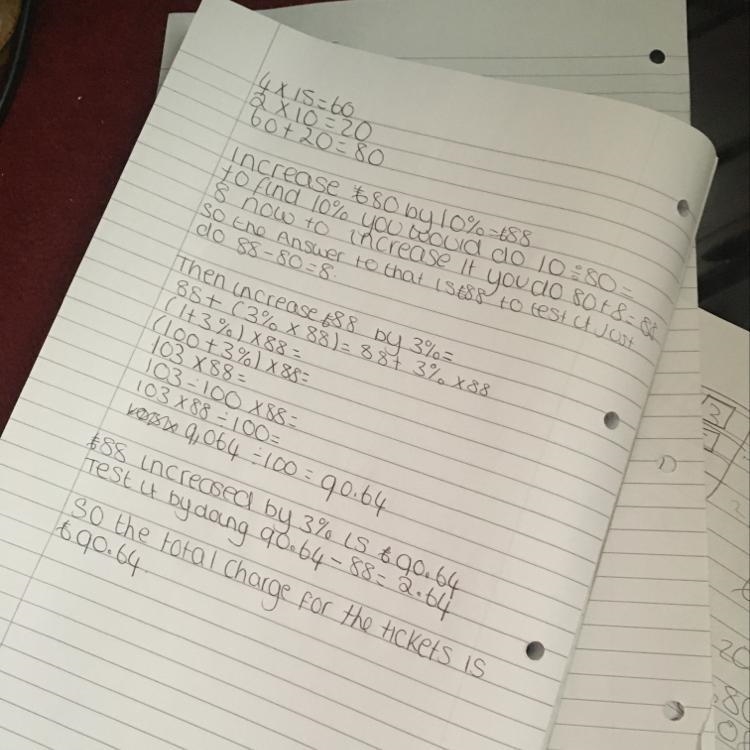 4 x 15 = 60
2 x 10 = 20
60 + 20 = 80
Increase £80 by 10% = £88
to find 10% you would do 10 ÷ 80 =
8 now to increase it you do 80 + 8 = 88
so the Answer to that is £88 to test it Just
do 88 - 80 = 8.
Then increase £88 by 3% =
88 + (3% x 88) = 88 + 3% x 88
(1 + 3%) x 88 =
(100 + 3%) x 88 =
103 x 88 =
103 ÷ 100 x 88 =
103 x 88 ÷ 100 =
9,064 ÷ 100 = 90.64
£88 increased by 3% is £90.64
Test it by doing 90.64 - 88 = 2.64
So the total charge for the tickets is
£90.64
3
20